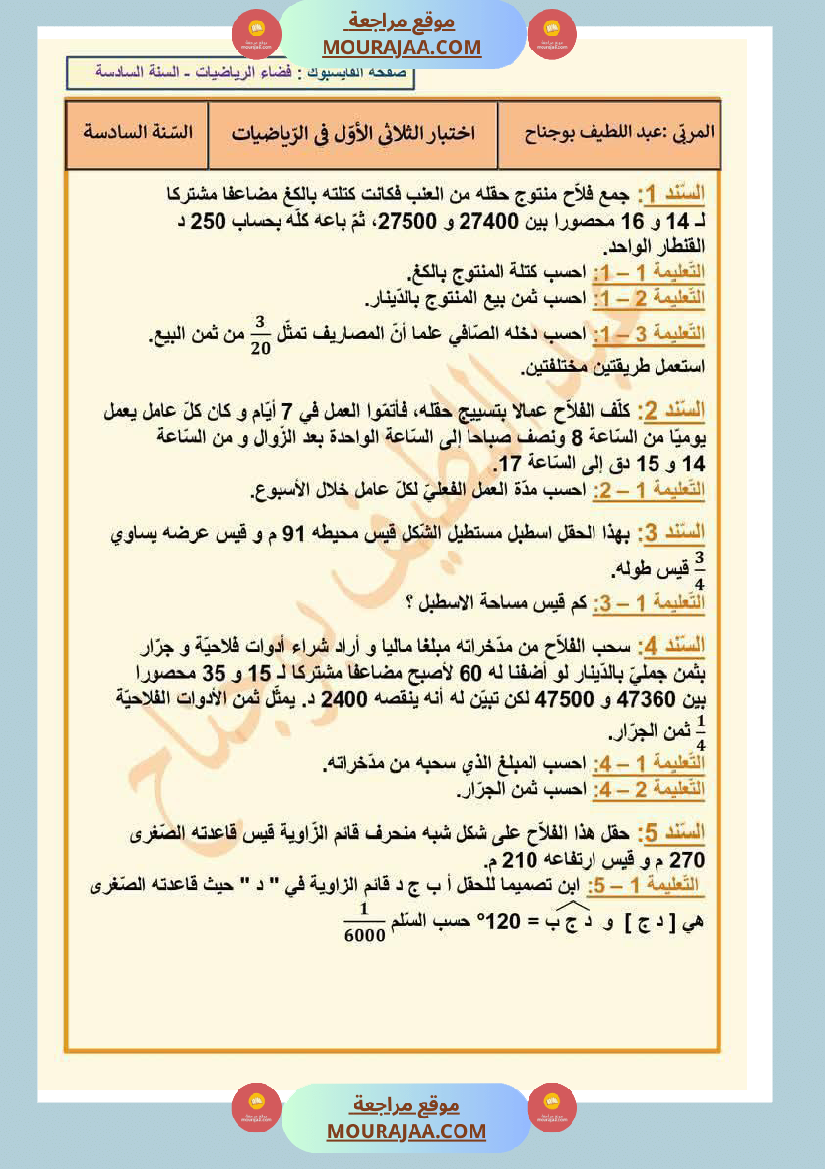 موقع مراجعة
MOURAJAA.COM
صفحة الفايسبوك : فضاء الرياضيات - السنة السادسة
المربّي :عبد اللطيف بوجناح
اختبار الثلاثي الأوّل في الرّياضيات
السّنة السادسة
السّند 1: جمع فلاّح منتوج حقله من العنب فكانت كتلته بالكغ مضاعفا مشتركا
لـ 14 و 16 محصورا بين 27400 و 27500، ثمّ باعه كلّه بحساب 250 د
القنطار الواحد.
التّعليمة 1 – 1: احسب كتلة المنتوج بالكغ.
التّعليمة 2 – 1: احسب ثمن بيع المنتوج بالدّينار.
التّعليمة 3 – 1: احسب دخله الصّافي علما أنّ المصاريف تمثّل 3/20 من ثمن البيع.
استعمل طريقتين مختلفتين.
السّند 2: كلّف الفلاّح عمالا بتسييج حقله، فأتمّوا العمل في 7 أيّام و كان كلّ عامل يعمل
يوميّا من السّاعة 8 ونصف صباحا إلى السّاعة الواحدة بعد الزّوال و من السّاعة
14 و 15 دق إلى السّاعة 17.
التّعليمة 1 – 2: احسب مدّة العمل الفعليّ لكلّ عامل خلال الأسبوع.
السّند 3: بهذا الحقل اسطبل مستطيل الشّكل قيس محيطه 91 م و قيس عرضه يساوي
3/4 قيس طوله.
التّعليمة 1 – 3: كم قيس مساحة الاسطبل ؟
السّند 4: سحب الفلاّح من مدّخراته مبلغا ماليا و أراد شراء أدوات فلاحيّة و جرّار
بثمن جمليّ بالدّينار لو أضفنا له 60 لأصبح مضاعفا مشتركا لـ 15 و 35 محصورا
بين 47360 و 47500 لكن تبيّن له أنه ينقصه 2400 د. يمثّل ثمن الأدوات الفلاحيّة
1/4 ثمن الجرّار.
التّعليمة 1 – 4: احسب المبلغ الذي سحبه من مدّخراته.
التّعليمة 2 – 4: احسب ثمن الجرّار.
السّند 5: حقل هذا الفلاّح على شكل شبه منحرف قائم الزّاوية قيس قاعدته الصّغرى
270 م و قيس ارتفاعه 210 م.
التّعليمة 1 – 5: ابن تصميما للحقل أ ب ج د قائم الزاوية في " د " حيث قاعدته الصّغرى
هي [ د ج ] و د ج ب = 120° حسب السّلم 1/6000
عبد اللطيف بوجناح
موقع مراجعة
MOURAJAA.COM